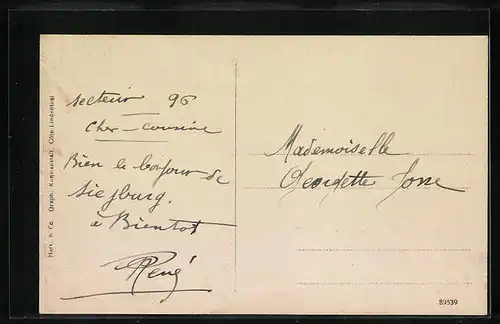 Secteur 96
Cher-cousine
Bien le bonjour de
Siegburg.
à Bientot
René
Mademoiselle
Georgette
Graph. Kunstanstalt, Cöln-Lindenthal
89539